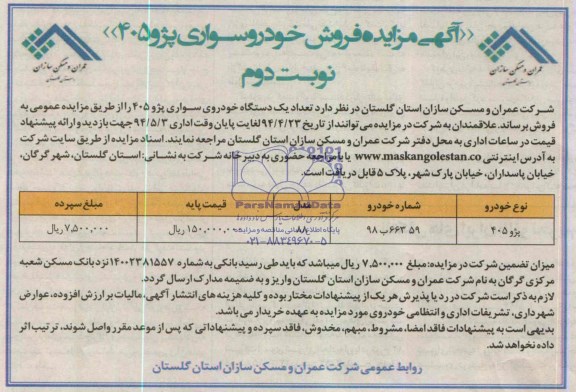 «آگهی مزایده فروش خودرو سواری پژو ۴۰۵»
نوبت دوم
عمران و مسکن سازان
استان گلستان
عمران و مسکن سازان
استان گلستان
شرکت عمران و مسکن سازان استان گلستان در نظر دارد تعداد یک دستگاه خودروی سواری پژو ۴۰۵ را از طریق مزایده عمومی به
فروش برساند. علاقمندان به شرکت در مزایده می توانند از تاریخ ۹۴/۴/۲۳ لغایت پایان وقت اداری ۹۴/۵/۳ جهت بازدید و ارائه پیشنهاد
قیمت در ساعات اداری به محل دفتر شرکت عمران و مسکن سازان استان گلستان مراجعه نمایند. اسناد مزایده از طریق سایت شرکت
به آدرس اینترنتی www.maskangolestan.co یا با مراجعه حضوری به دبیرخانه شرکت به نشانی: استان گلستان، شهر گرگان،
خیابان پاسداران، خیابان پارک شهر، پلاک ۵ قابل دریافت است.
نوع خودرو شماره خودرو مدل قیمت پایه مبلغ سپرده
پژو ۴۰۵ ۵۹ ۶۶۳ ب ۹۸ ۸۸ ۱۵۰,۰۰۰,۰۰۰ ریال ۷,۵۰۰,۰۰۰ ریال
ParsNamadData
پایگاه اطلاع رسانی مناقصه و مزایده
۰۲۱-۸۸۳۴۹۶۷۰-۵
میزان تضمین شرکت در مزایده: مبلغ ۷,۵۰۰,۰۰۰ ریال میباشد که باید طی رسید بانکی به شماره ۱۴۰۰۲۳۸۱۵۵۷ نزد بانک مسکن شعبه
مرکزی گرگان به نام شرکت عمران و مسکن سازان استان گلستان واریز و به ضمیمه مدارک ارسال گردد.
لازم به ذکر است شرکت در رد یا پذیرش هر یک از پیشنهادات مختار بوده و کلیه هزینه های انتشار آگهی، مالیات بر ارزش افزوده، عوارض
شهرداری، تشریفات اداری و انتظامی خودروی مورد مزایده به عهده خریدار می باشد.
بدیهی است به پیشنهادات فاقد امضا، مشروط، مبهم، مخدوش، فاقد سپرده و پیشنهاداتی که پس از موعد مقرر واصل شوند، ترتیب اثر
داده نخواهد شد.
روابط عمومی شرکت عمران و مسکن سازان استان گلستان